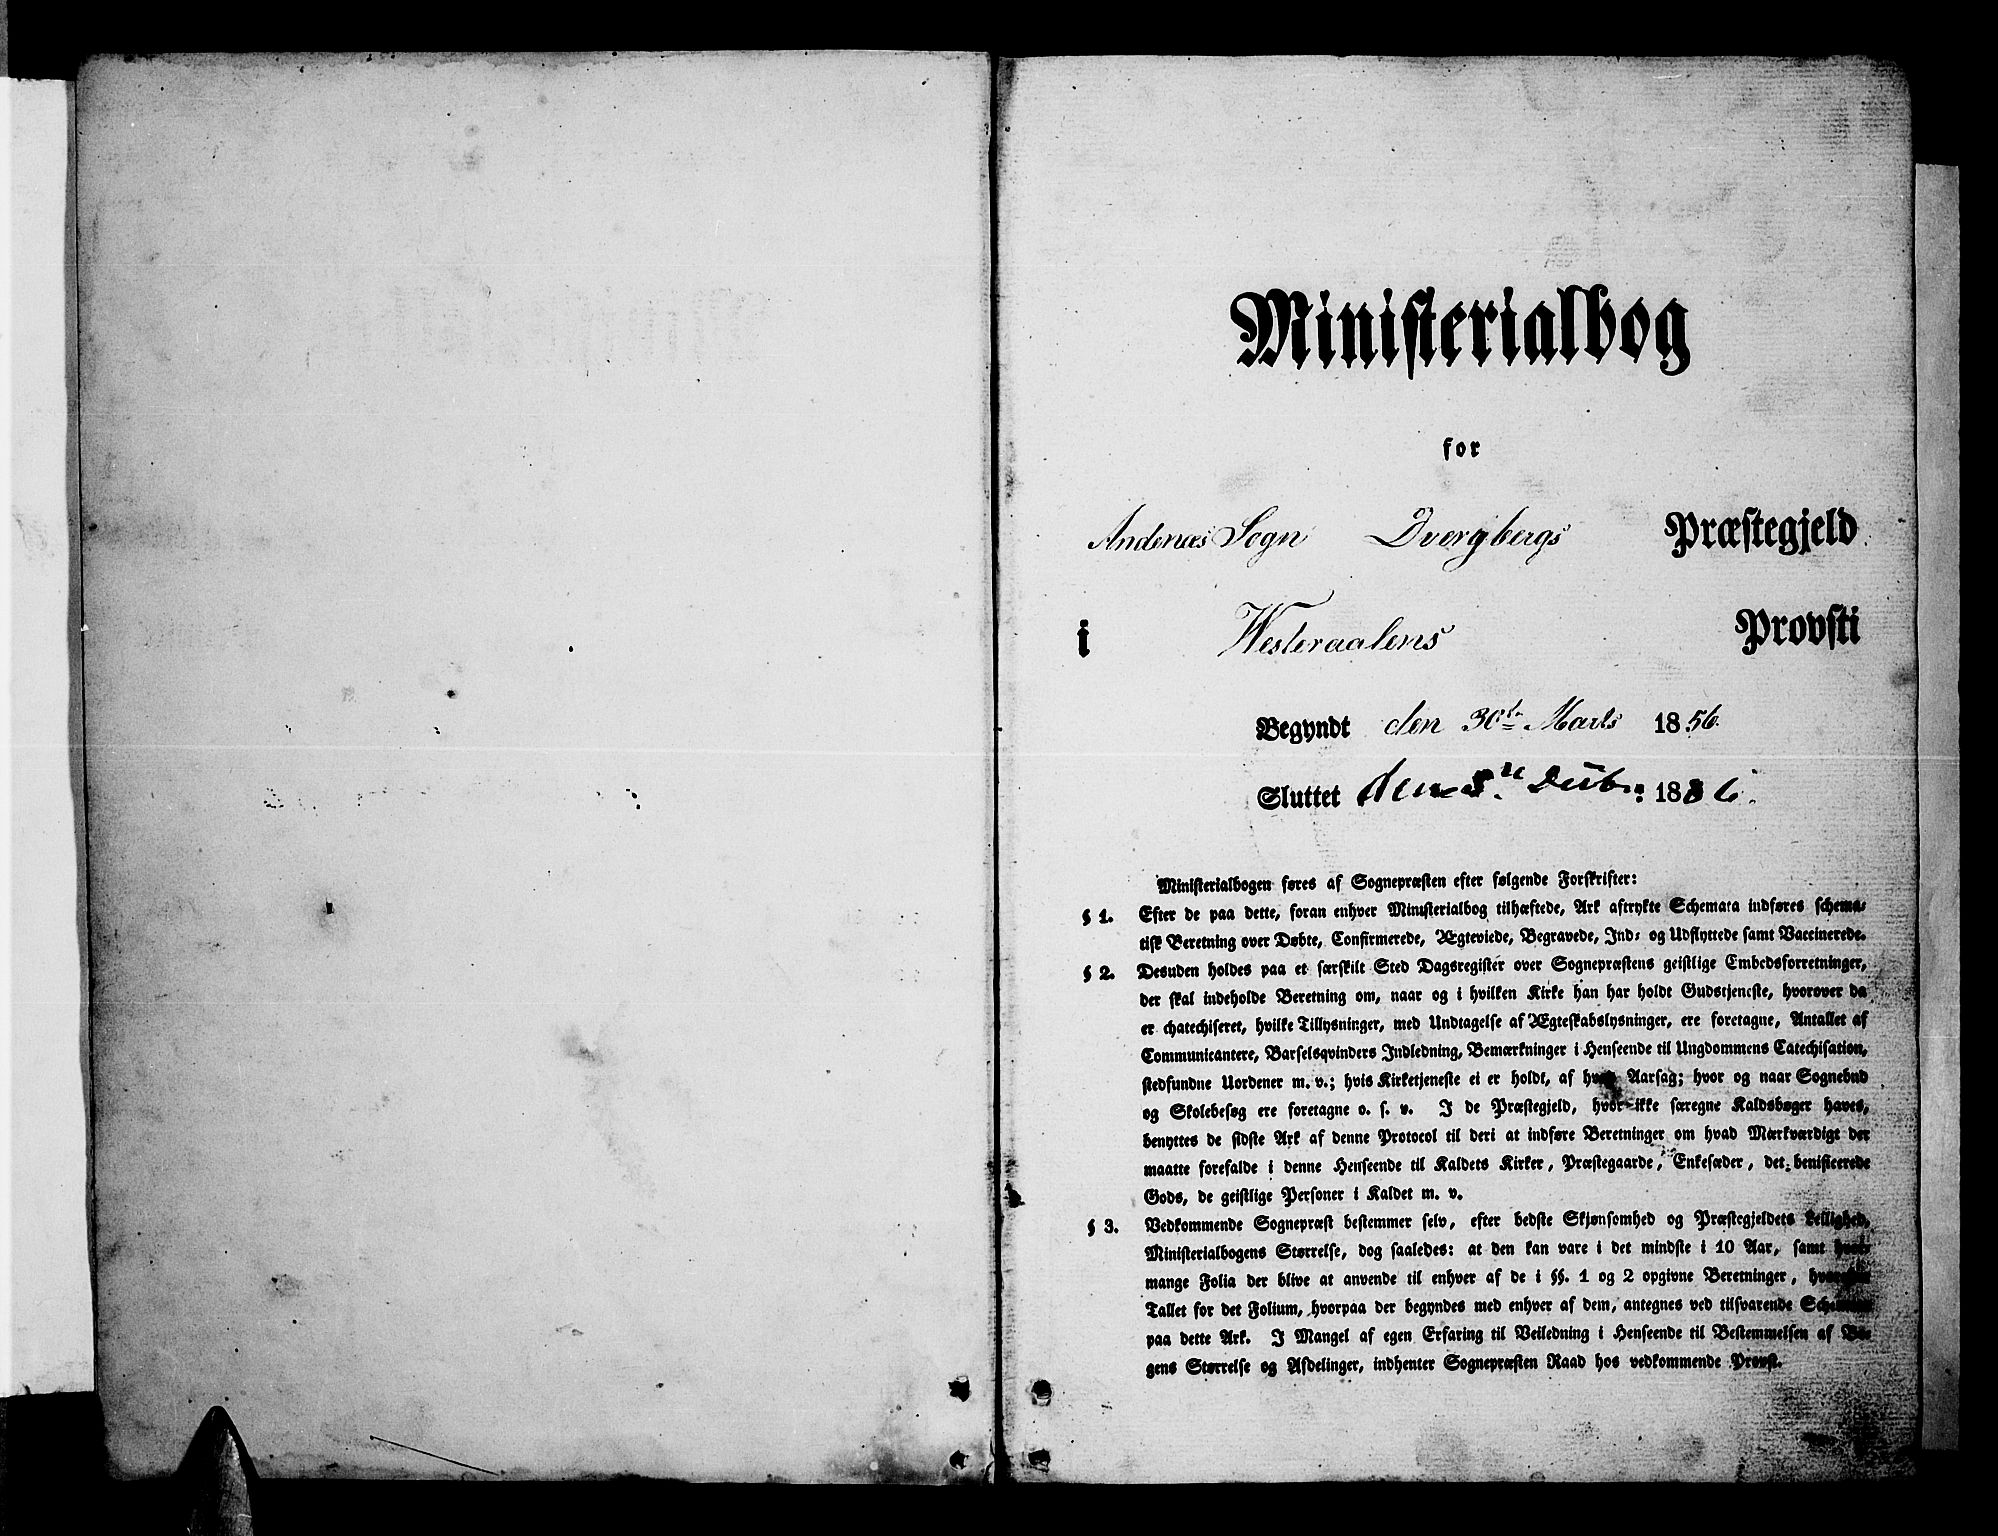 Ministerialbog
for
Andenæs Sogn Dvergbergs Præstegjeld
i Westeraalens Provsti
Begyndt den 30te Marts 1856.
Sluttet den 5te 1886.
Ministerialbogen føres af Sognepræsten efter følgende Forskrifter:
§ 1. Efter de paa dette, foran enhver Ministerialbog tilhæftede, Ark aftrykte Schemata indføres schema-
tisk Beretning over Døbte, Confirmerede, Ægteviede, Begravede, Ind- og Udflyttede samt Vaccinerede.
§ 2. Desuden holdes paa et særskilt Sted Dagsregister over Sognepræstens geistlige Embedsforretninger,
der skal indeholde Beretning om, naar og i hvilken Kirke han har holdt Gudstjeneste, hvorover da
er chatechiseret, hvilke Tillysninger, med Undtagelse af Ægteskabslysninger, ere foretagne, Antallet af
Communicantere, Barselsqvinders Indledning, Bemærkninger i Henseende til Ungdommens Catechisation,
stedfundne Uordener m. v.; hvis Kirketjeneste ei er holdt, af hvad Aarsag; hvor og naar Sognebud
og Skolebesøg ere foretagne o. s. v. I de Præstegjeld, hvor ikke særegne Kaldsbøger haves,
benyttes de sidste Ark af denne Protocol til deri at indføre Beretninger om hvad Mærkværdigt der
maatte forefalde i denne Henseende til Kaldets Kirker, Præstegaarde, Enkesæder, det benificerede
Gods, de geistlige Personer i Kaldet m. v.
§ 3. Vedkommende Sognepræst bestemmer selv, efter bedste Skjønsomhed og Præstegjeldets Leilighed,
Ministerialbogens Størrelse, dog saaledes: at den kan vare i det mindste i 10 Aar, samt hvor-
mange Folia der blive at anvende til enhver af de i §§. 1 og 2 opgivne Beretninger, hvorefter
Tallet for det Folium, hvorpaa der begyndes med enhver af dem, antegnes ved tilsvarende Schema
paa dette Ark. I Mangel af egen Erfaring til Veiledning i Henseende til Bestemmelsen af Bo-
gens Størrelse og Afdelinger, indhenter Sognepræsten Raad hos vedkommende Provst.